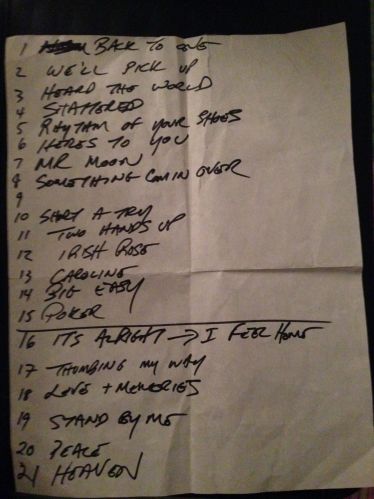 1 BACK TO ONE
2 WE'LL PICK UP
3 HEARD THE WORLD
4 SHATTERED
5 RHYTHM OF YOUR SHOES
6 HERES TO YOU
7 MR MOON
8 SOMETHING COMIN OVER
9
10 SHORT A TRY
11 TWO HANDS UP
12 IRISH ROSE
13 CAROLINE
14 BIG EASY
15 POKER
16 ITS ALRIGHT → I FEEL HOME
17 THUMBING MY WAY
18 LOVE + MEMORIES
19 STAND BY ME
20 PEACE
21 HEAVEN